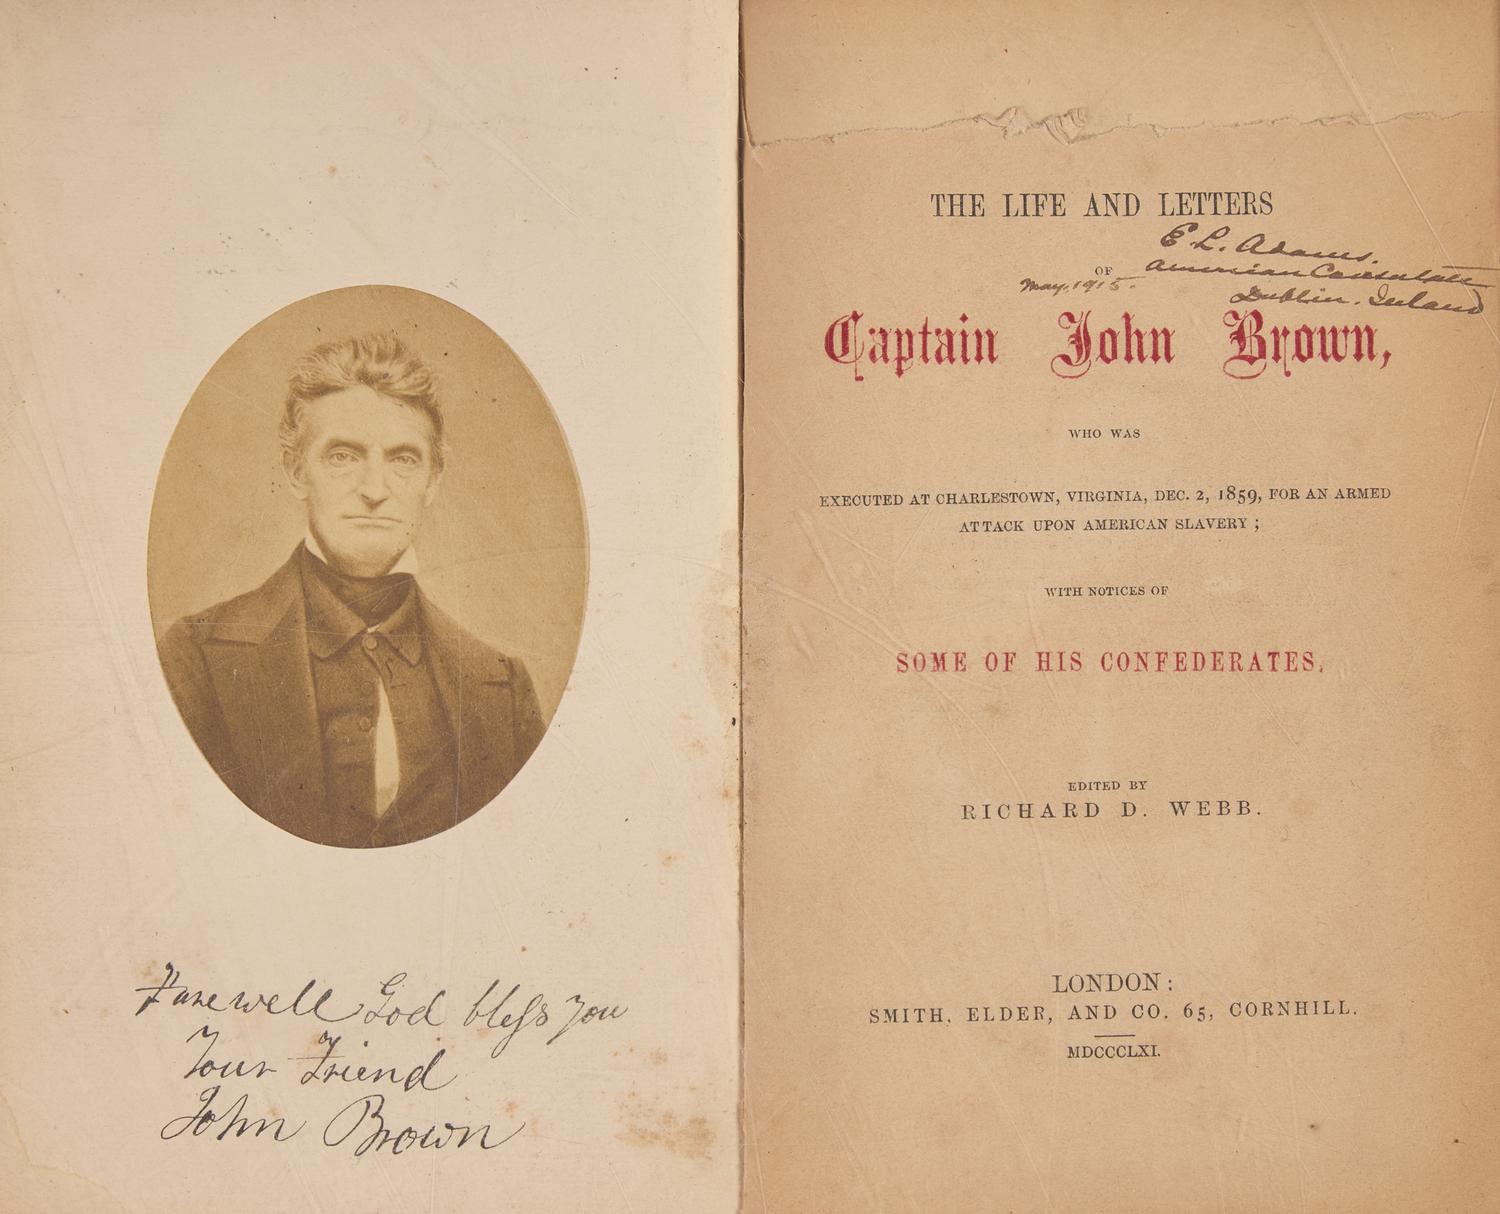 Farewell God bless you
Your Friend
John Brown
THE LIFE AND LETTERS
E. L. Adams.
OF American Consulate
May, 1915. Dublin. Ireland
Captain John Brown,
WHO WAS
EXECUTED AT CHARLESTOWN, VIRGINIA, DEC. 2, 1859, FOR AN ARMED
ATTACK UPON AMERICAN SLAVERY ;
WITH NOTICES OF
SOME OF HIS CONFEDERATES.
EDITED BY
RICHARD D. WEBB.
LONDON :
SMITH, ELDER, AND CO. 65, CORNHILL.
MDCCCLXI.